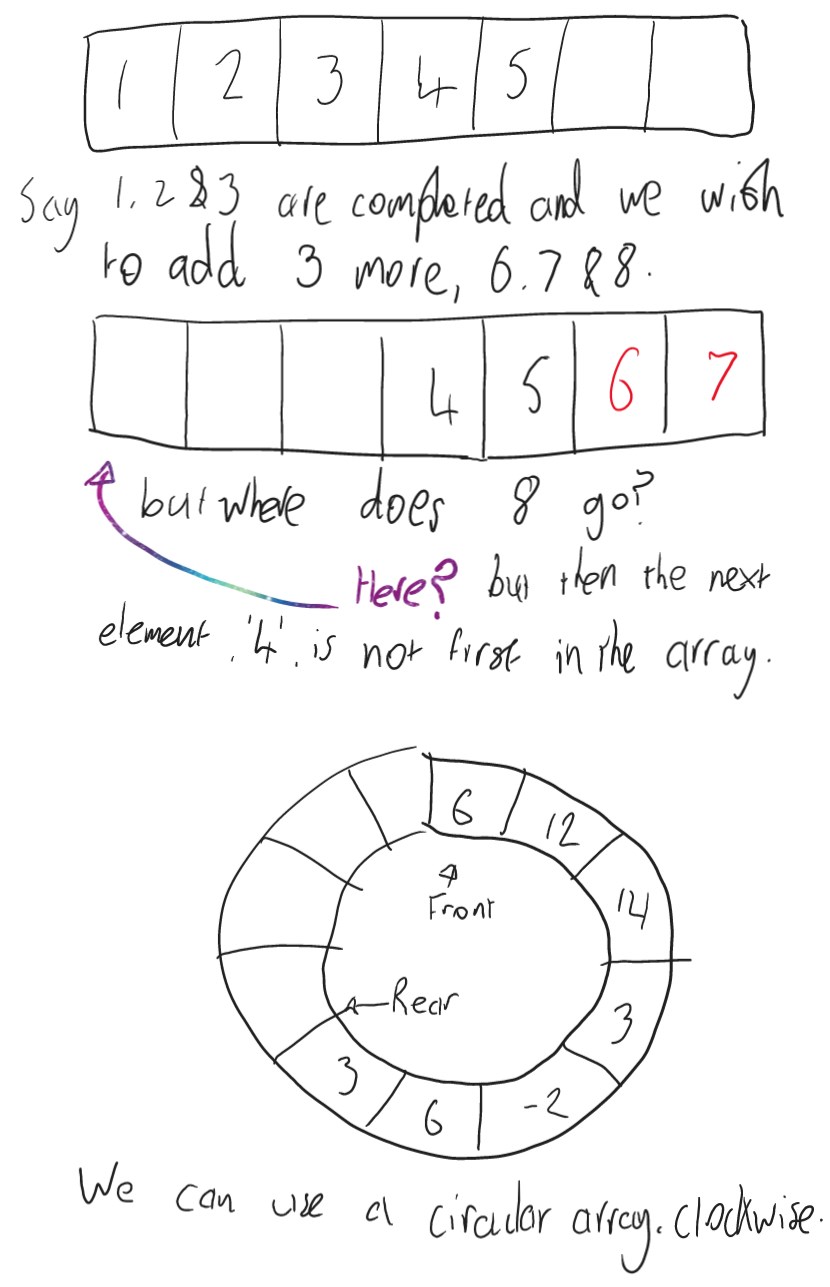 1 2 3 4 5
Say 1, 2 & 3 are completed and we wish
to add 3 more, 6.7 & 8.
4 5 6 7
but where does 8 go?
Here? but then the next
element, '4', is not first in the array.
6 12 14 3 -2 6 3
Front
Rear
We can use a circular array. clockwise.